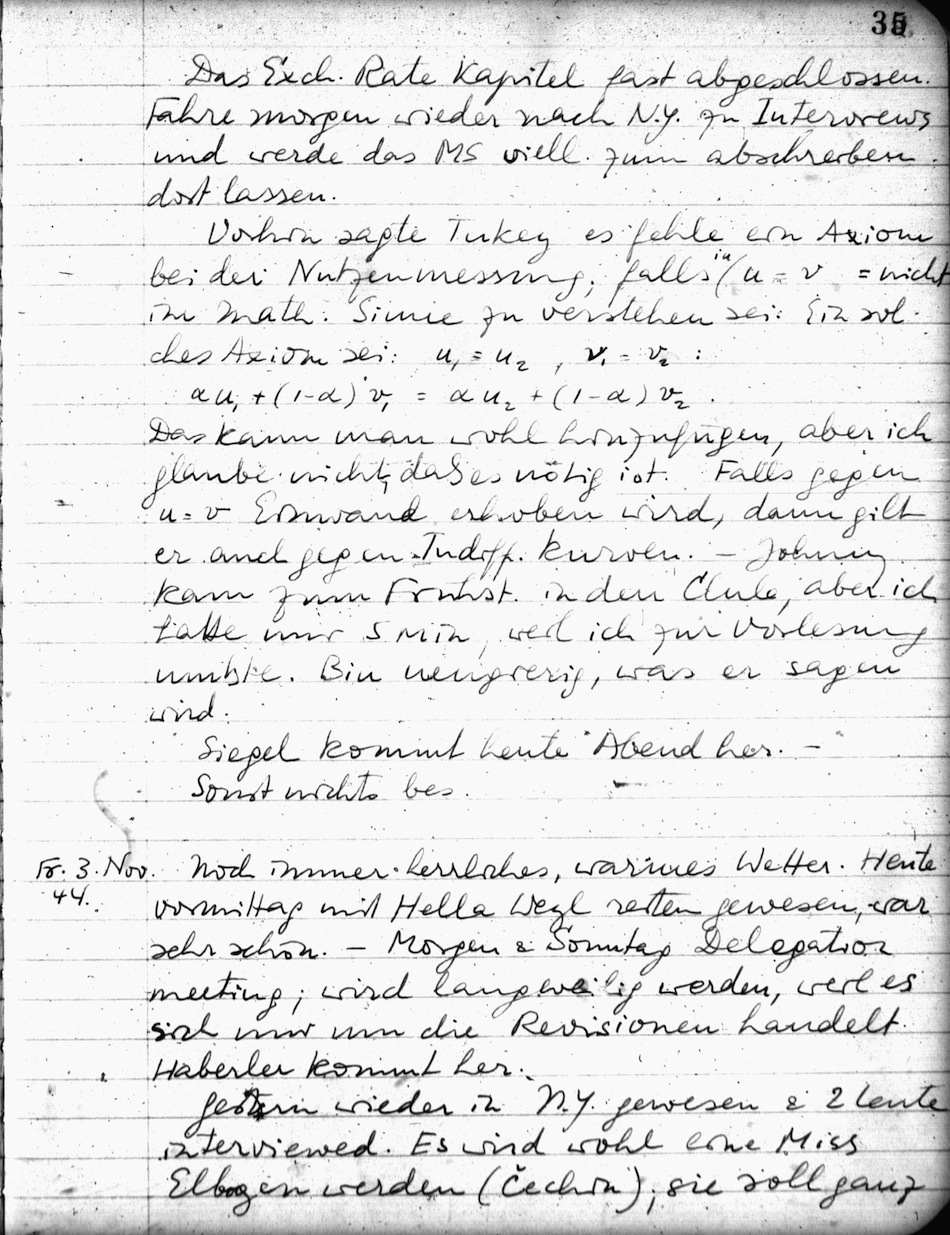 35
Das Exch. Rate Kapitel fast abgeschlossen.
Fahre morgen wieder nach N.Y. zu Interviews
und werde das MS viell. zum abschreiben
dort lassen.
Vorhin sagte Tukey es fehle ein Axiom
bei der Nutzenmessung, falls in (u = v = nicht
im math. Sinne zu verstehen sei. Ein sol-
ches Axiom sei: u₁ = u₂ , v₁ = v₂ :
αu₁ + (1-α) v₁ = αu₂ + (1-α) v₂ .
Das kann man wohl hinzufügen, aber ich
glaube nicht, daß es nötig ist. Falls gegen
u = v Einwand erhoben wird, dann gilt
er auch gegen Indiff. kurven. – Johnny
kam zum Frühst. in den Club, aber ich
hatte nur 5 Min, weil ich zur Vorlesung
mußte. Bin neugierig, was er sagen
wird.
Siegel kommt heute Abend her. –
Sonst nichts bes.
Fr. 3. Nov. Noch immer herrliches, warmes Wetter. Heute
44. vormittag mit Hella Weyl reiten gewesen, war
sehr schön. – Morgen & Sonntag Delegation
meeting; wird langweilig werden, weil es
sich nur um die Revisionen handelt.
Haberler kommt her.
Gestern wieder in N.Y. gewesen & 2 Leute
interviewed. Es wird wohl eine Miss
Elbogen werden (Čechin); sie soll ganz